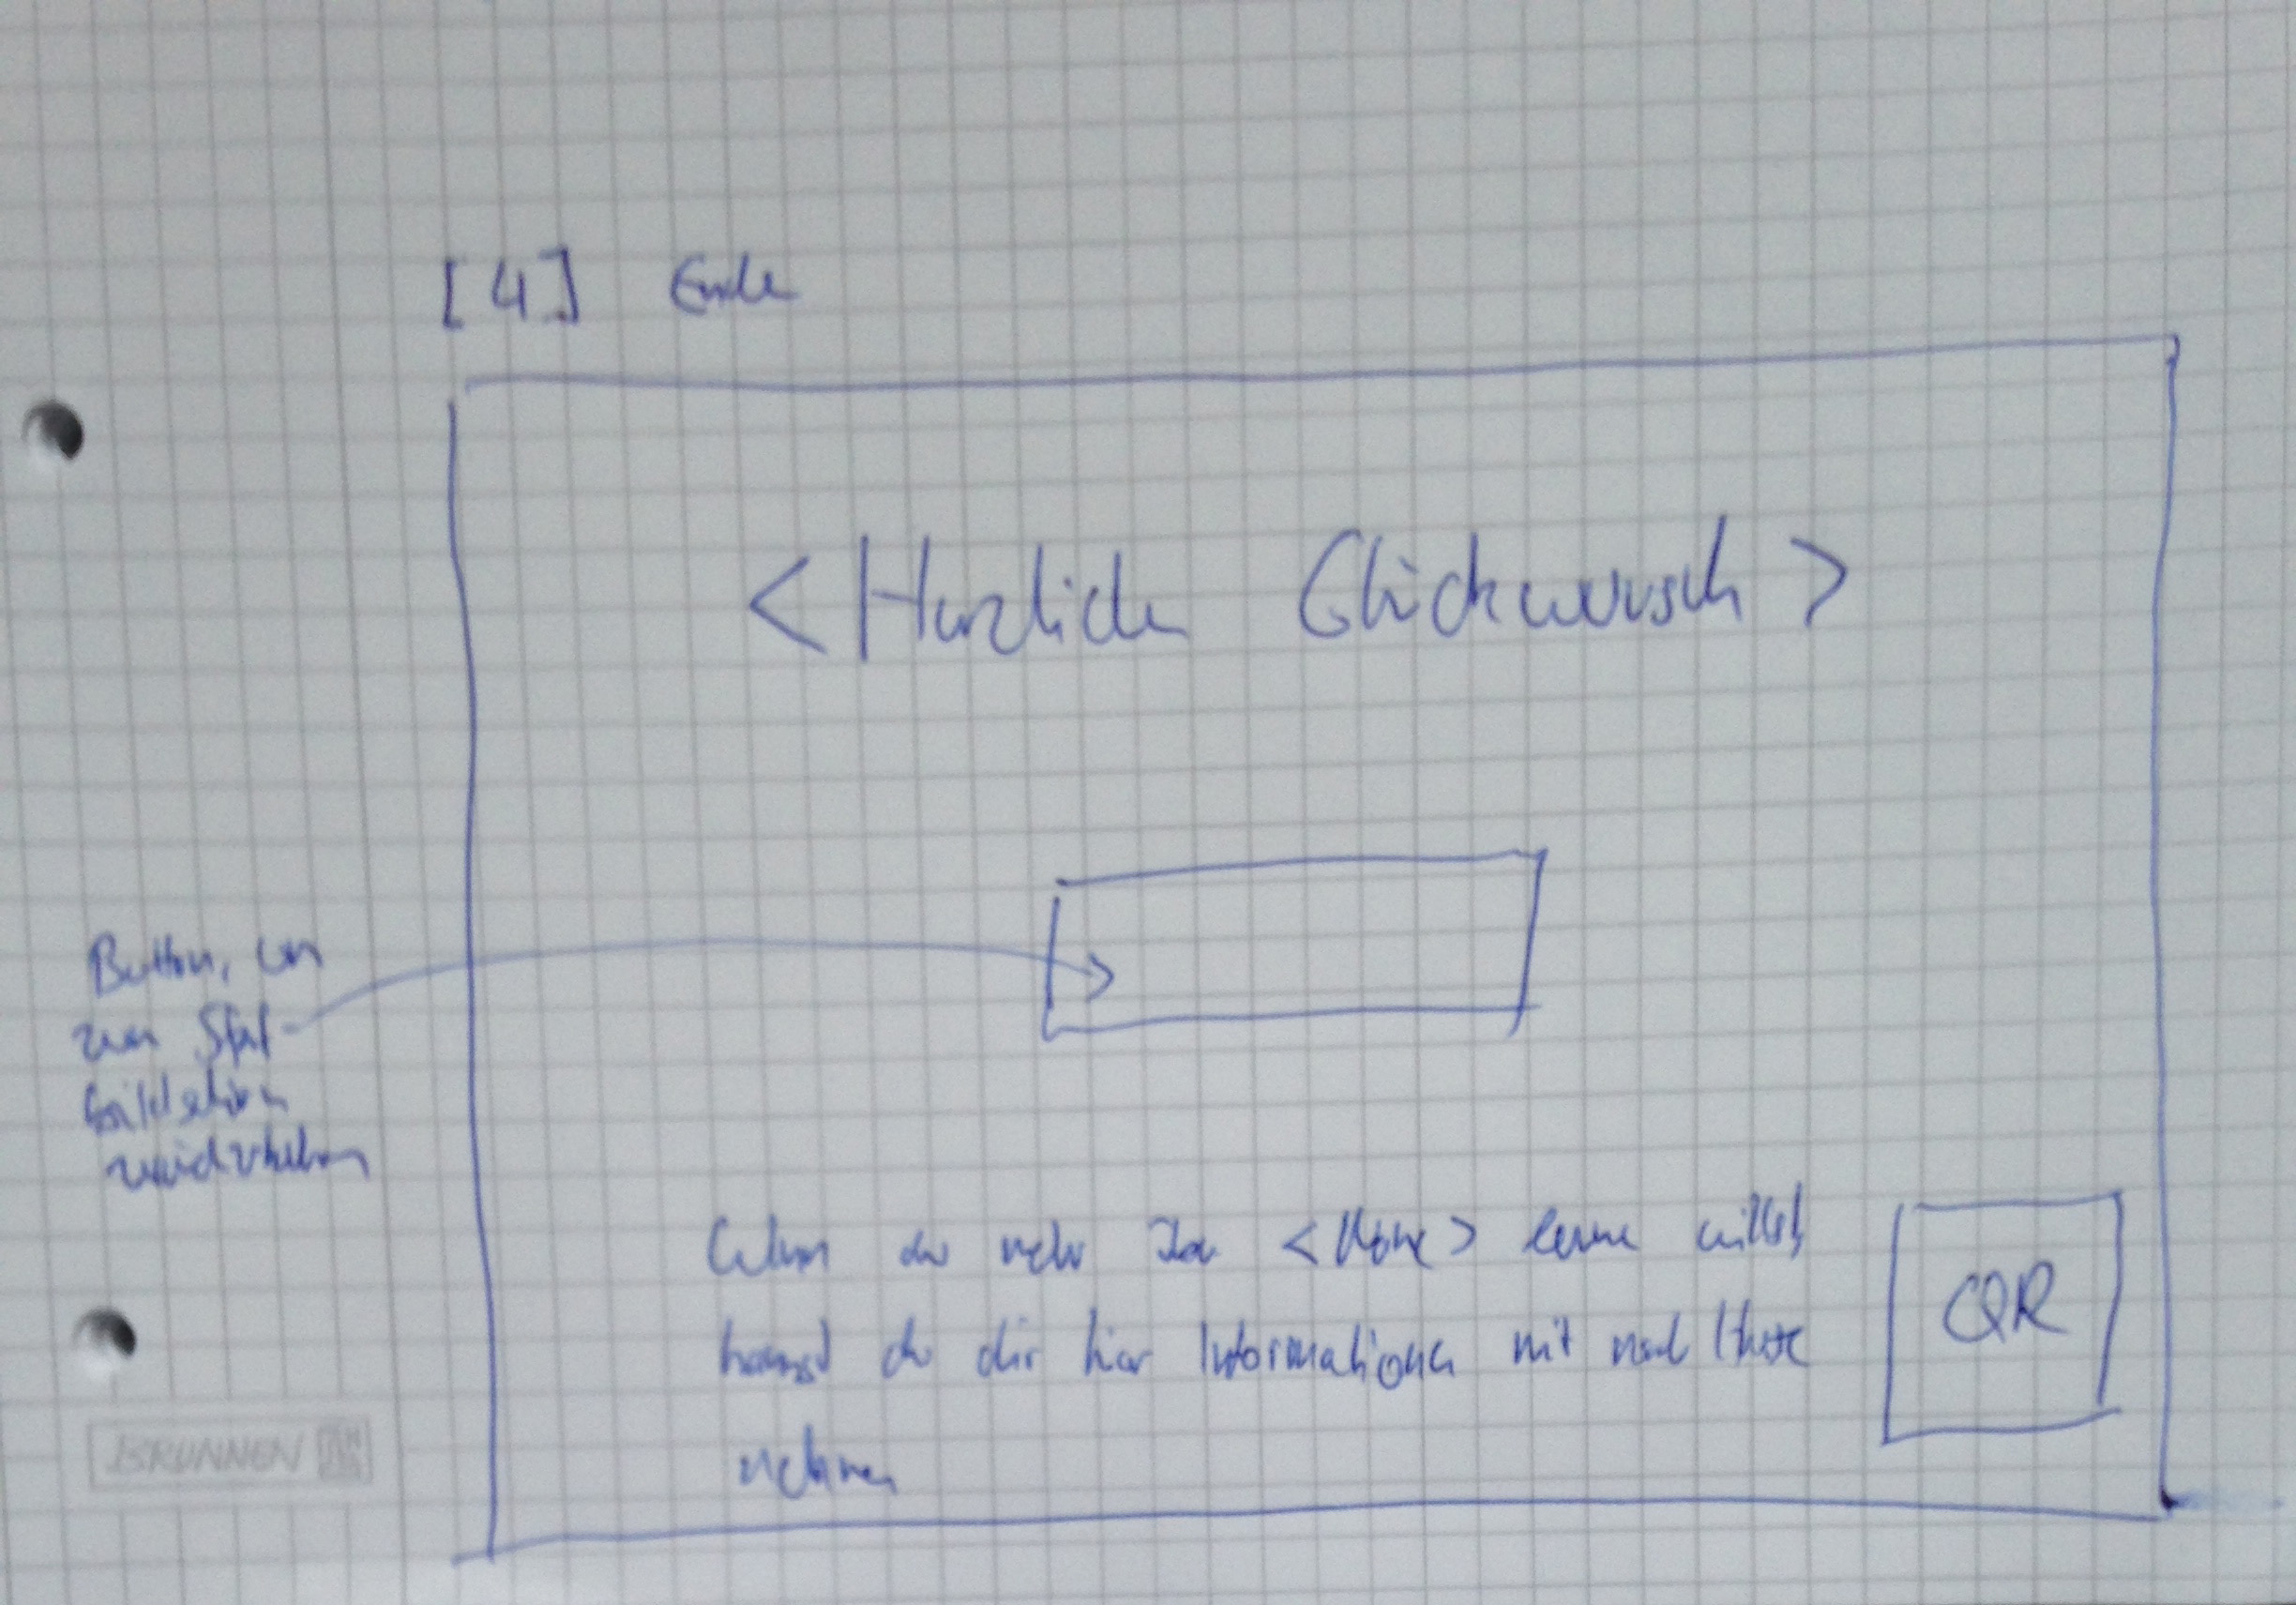 [4] Ende
<Herzlichen Glückwunsch>
Button, um
zum Start-
bildschirm
zurückzukehren
Wenn du mehr über < > lernen willst,
kannst du dir hier Informationen mit nach Hause
nehmen
QR
BRUNNEN